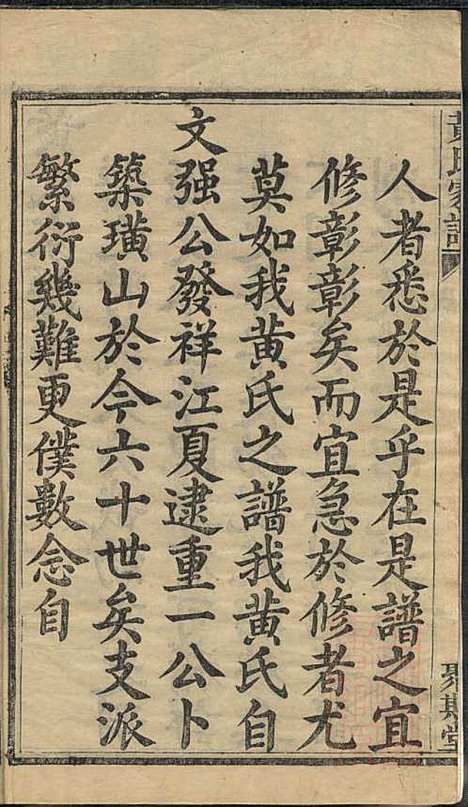 黃氏家譜
聚斯堂
人者悉於是乎在是譜之宜
修彰彰矣而宜急於修者尤
莫如我黃氏之譜我黃氏自
文强公發祥江夏逮重一公卜
築璜山於今六十世矣支派
繁衍幾難更僕數念自